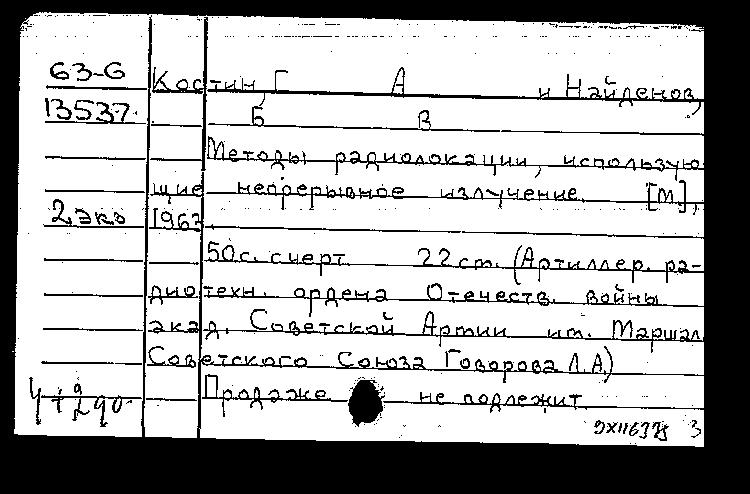 63-6 Костин, Г А и Найденов,
13537. Б В
Методы радиолокации, использую
щие непрерывное излучение. [М.],
2 экз 1963.
50 с. с черт. 22 см. (Артиллер. ра-
диотехн. ордена Отечеств. войны
акад. Советской Армии им. Маршал
Советского Союза Говорова Л.А.)
Продаже не подлежит
3